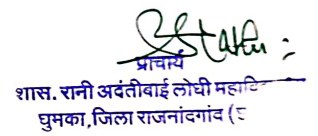 प्राचार्य
शास. रानी अदंतीबाई लोधी
घुमका, जिला राजनांदगांव